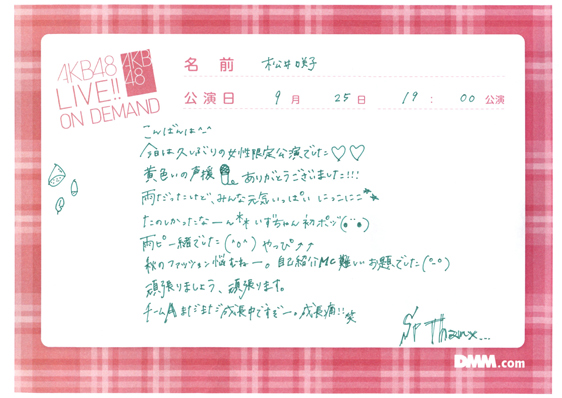 AKB48
LIVE!!
ON DEMAND
AKB
48
名前 松井咲子
公演日 9月 25日 19:00公演
こんばんは^-^
今日は久しぶりの女性限定公演でした♡♡
黄色いの声援 ありがとうございました!!!
雨だったけど、みんな元気いっぱい にっこにこ**
たのしかったなーん** いずちゃん初ポッヅ(•¨•)
両ピ一緒でした(^o^)やっぴ↗↗
秋のファッション悩むねー。自己紹介MC難しいお題でした(°-°)
頑張りましょう、頑張ります。
チームAまだまだ成長中ですぞー。成長痛!!笑
Sp Thanx...
DMM.com